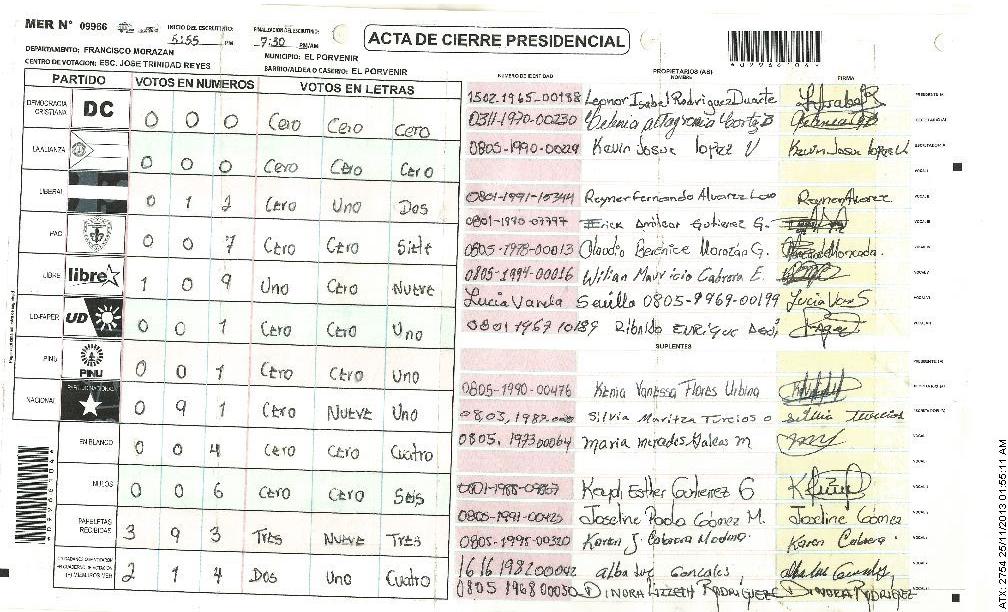 MER N° 09966
INICIO DEL ESCRUTINIO: 5:55 PM
FINALIZACIÓN DEL ESCRUTINIO: 7:30 PM/AM
ACTA DE CIERRE PRESIDENCIAL
DEPARTAMENTO: FRANCISCO MORAZAN
MUNICIPIO: EL PORVENIR
CENTRO DE VOTACION: ESC. JOSE TRINIDAD REYES
BARRIO/ALDEA O CASERIO: EL PORVENIR
PARTIDO VOTOS EN NUMEROS VOTOS EN LETRAS
NUMERO DE IDENTIDAD PROPIETARIOS (AS) NOMBRE FIRMA
DEMOCRACIA CRISTIANA DC 0 0 0 Cero Cero Cero
LA ALIANZA 0 0 0 Cero Cero Cero
LIBERAL 0 1 2 Cero Uno Dos
PAC 0 0 7 Cero Cero Siete
LIBRE libre 1 0 9 Uno Cero Nueve
UD-FAPER UD 0 0 1 Cero Cero Uno
PINU PINU 0 0 1 Cero Cero Uno
NACIONAL 0 9 1 Cero Nueve Uno
EN BLANCO 0 0 4 Cero Cero Cuatro
NULOS 0 0 6 Cero Cero Seis
PAPELETAS RECIBIDAS 3 9 3 Tres Nueve Tres
2 1 4 Dos Uno Cuatro
1502-1965-00188 Leonor Isabel Rodriguez Duarte
0311-1970-00230
0805-1990-00229 Kevin Josue lopez V Kevin Josue lopez V
0801-1991-15344 Reyner Fernando Alvarez Reyner Alvarez
Erick Amilcar Gutierez G.
0805-1978-00013 Claudia Berenice Morazán G.
0805-1994-00016 Wilian Mauricio Cabrera E.
Lucia Varela Sevilla 0805-1969-00199
0801 1967 10189 ENRIQUE
SUPLENTES
0805-1990-00476 Kenia Vanessa Flores Urbina
Silvia Maritza Turcios o Silvia Turcios
0805, 197300064 maria mercedes Galeas m
0801-1988-09867 Esther Gutierrez G
0805-1991-00423 Joseline Paola Gómez M. Joseline Gómez
0805-1995-00320 Karen J. Cabrera Medina Karen Cabrera
1616198200042 alba luz Gonzales
0805 196800030 DINORA LIZZETH RODRIGUEZ DINORA RODRIGUEZ
2754 25/11/2013 01:55:11 AM